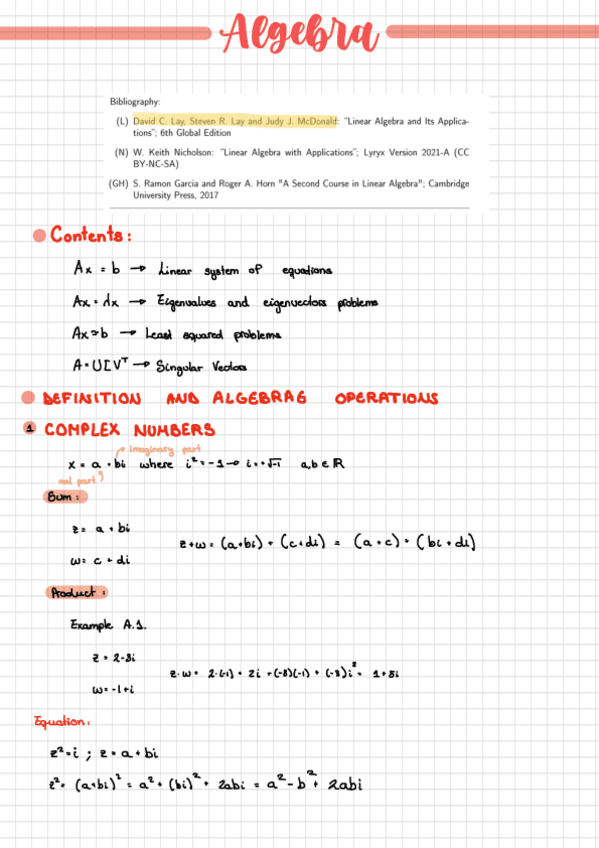 Algebra
Bibliography:
(L) David C. Lay, Steven R. Lay and Judy J. McDonald: "Linear Algebra and Its Applica-
tions"; 6th Global Edition
(N) W. Keith Nicholson: "Linear Algebra with Applications"; Lyryx Version 2021-A (CC
BY-NC-SA)
(GH) S. Ramon Garcia and Roger A. Horn "A Second Course in Linear Algebra"; Cambridge
University Press, 2017
Contents:
Ax = b → Linear system of equations
Ax = λx → Eigenvalues and eigenvectors problems
Ax ≈ b → Least squared problems
A = UΣVᵀ → Singular Vectors
DEFINITION AND ALGEBRAG OPERATIONS
1 COMPLEX NUMBERS
imaginary part
x = a + bi where i² = -1 → i = +√-1 a,b ∈ ℝ
real part
Sum:
z = a + bi
z+w = (a+bi) + (c+di) = (a+c) + (bi+di)
w = c + di
Product:
Example A.1.
z = 2-3i
z·w = 2·(-1) + 2i + (-3)(-1) + (-3)i² = 1+5i
w = -1+i
Equation:
z² = i ; z = a + bi
z² = (a+bi)² = a² + (bi)² + 2abi = a² - b² + 2abi